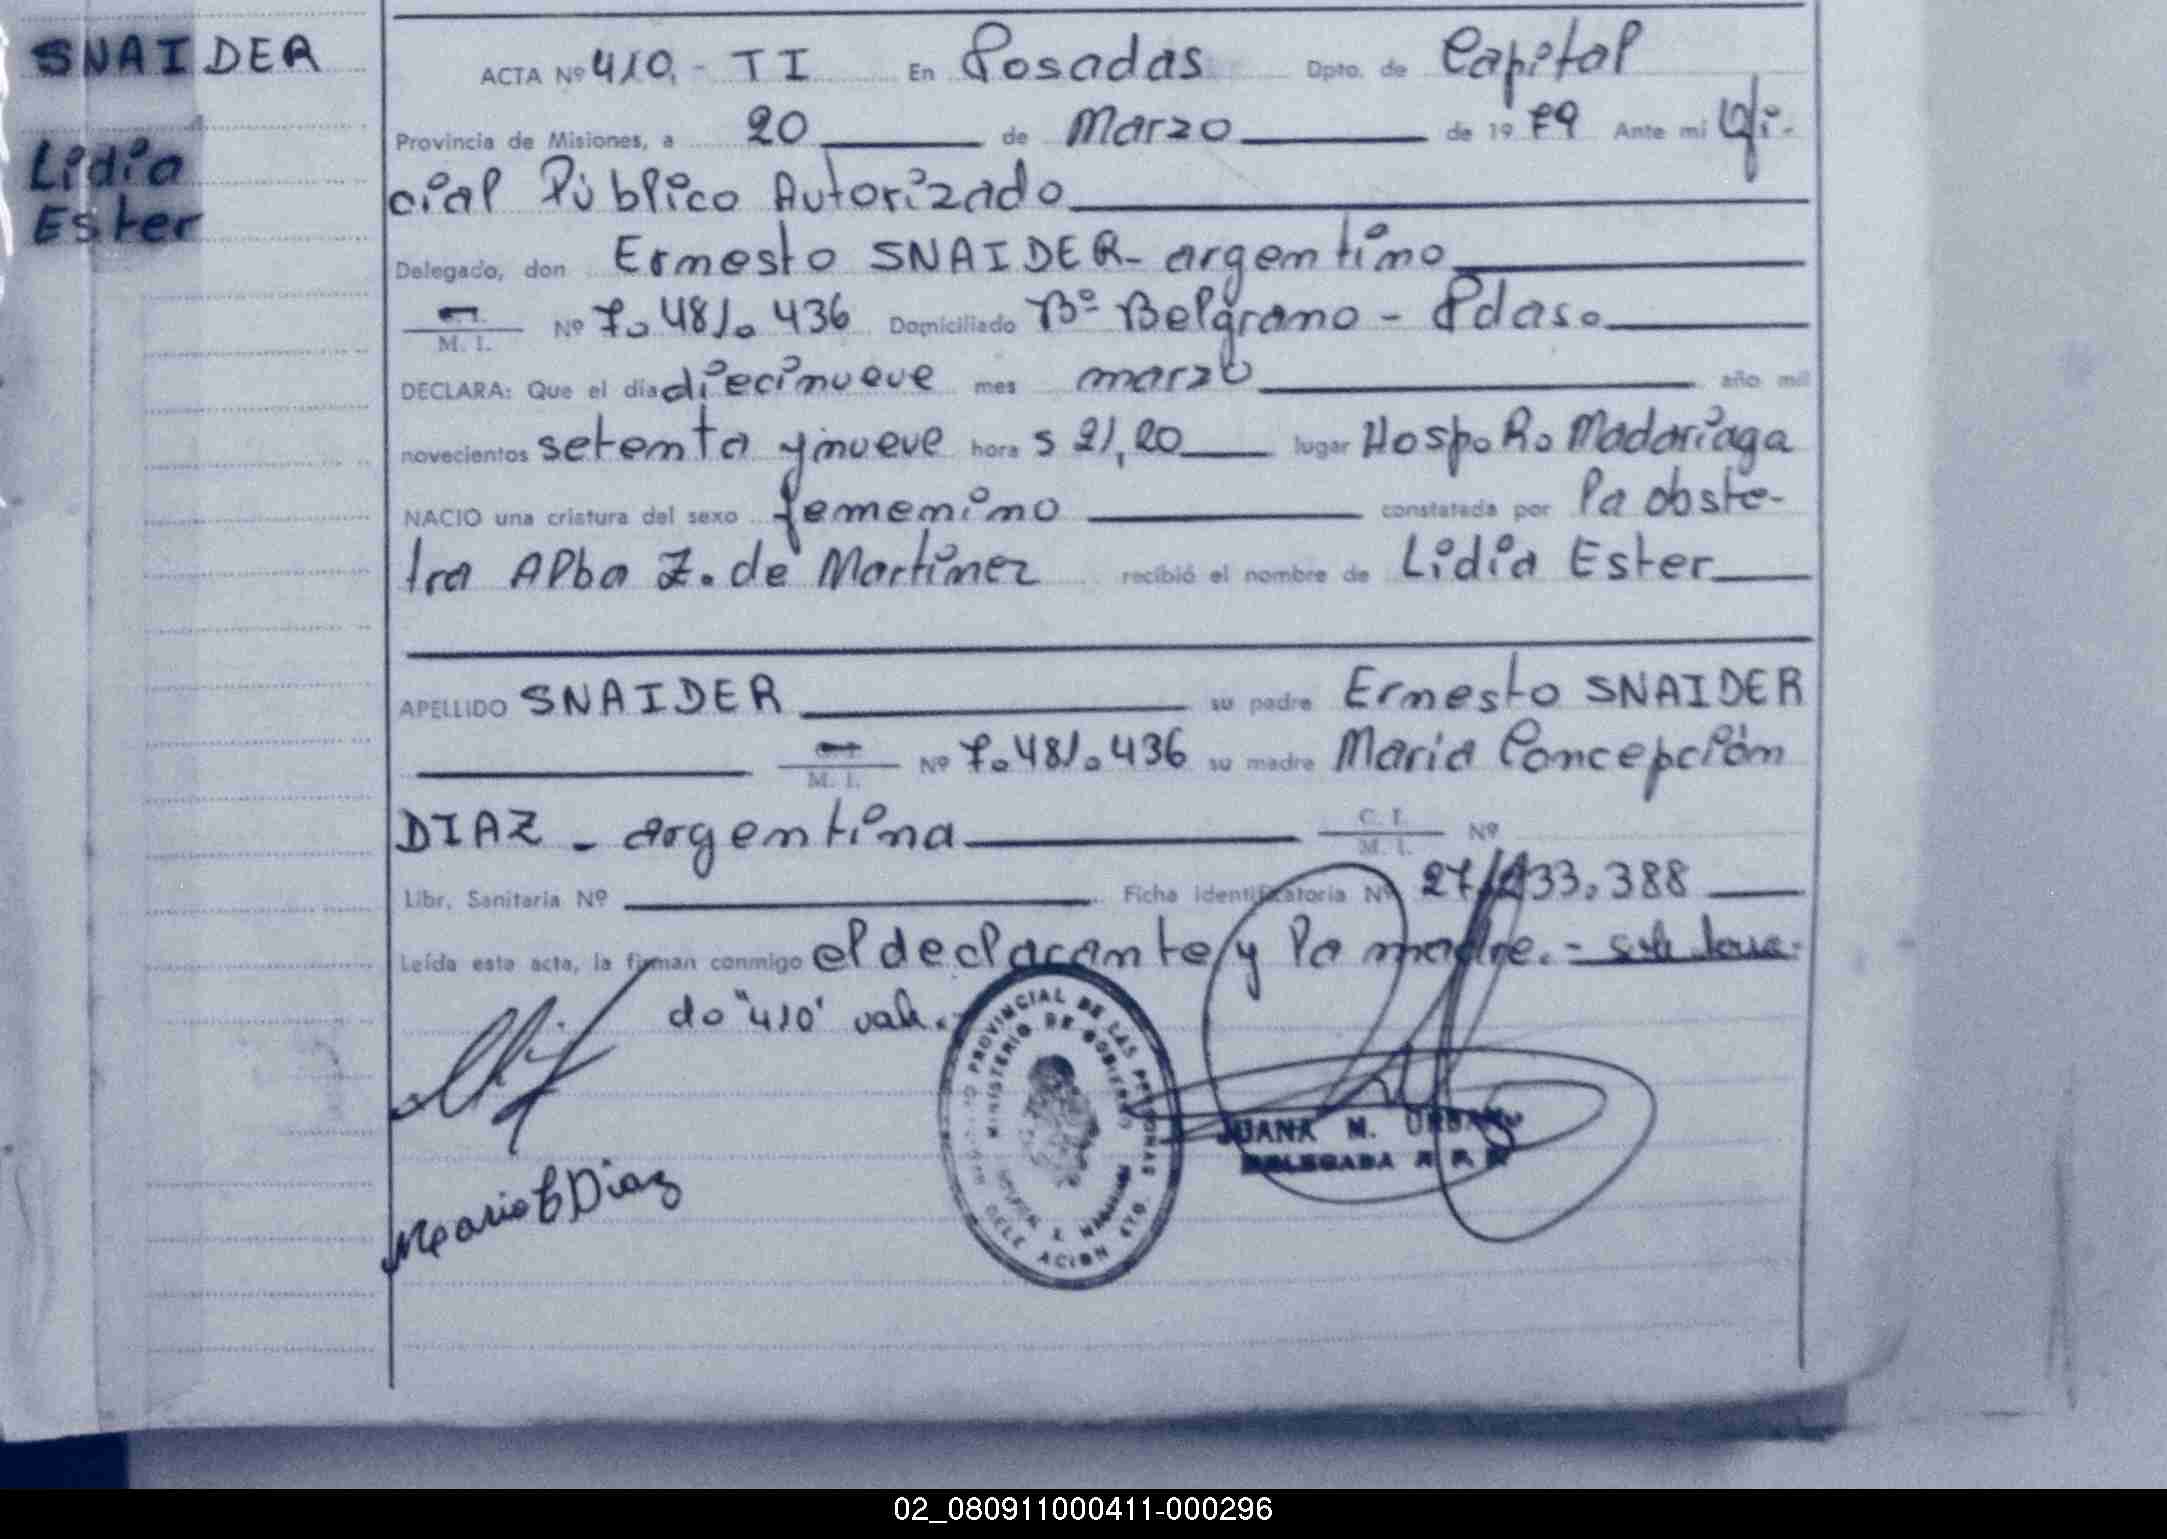 SNAIDER
Lidia
Ester
ACTA Nº 410.- TI En Posadas Dpto. de Capital
Provincia de Misiones, a 20 de Marzo de 1979 Ante mi Ofi-
cial Público Autorizado
Delegado, don Ernesto SNAIDER- argentino
M. I. Nº 7.481.436 Domiciliado Bº Belgrano - Pdas.
DECLARA: Que el día diecinueve mes marzo año mil
novecientos setenta y nueve hora s 21,20 lugar Hosp. R. Madariaga
NACIO una criatura del sexo femenino constatada por la obste-
tra Alba Z. de Martinez recibió el nombre de Lidia Ester
APELLIDO SNAIDER su padre Ernesto SNAIDER
M. I. Nº 7.481.436 su madre Maria Concepción
DIAZ - argentina C. I. M. I. Nº
Libr. Sanitaria Nº Ficha identificatoria Nº 27.233.388
Leída esta acta, la firman conmigo el declarante y la madre.-
do "410" vale.-
Maria C Diaz
PROVINCIAL DE LAS PERSONAS
MINISTERIO DE GOBIERNO
DELEGACION
JUANA M. URBANO
DELEGADA R P P
02_080911000411-000296